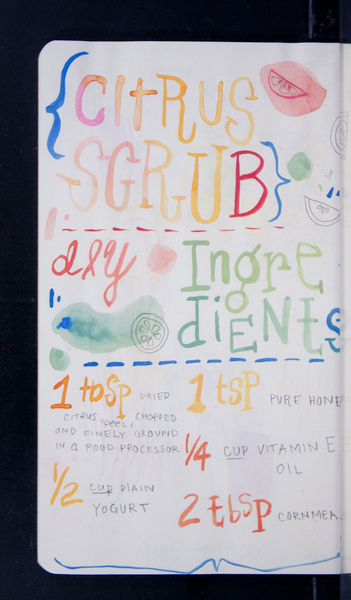 {CITRUS
SCRUB}
diy
Ingre
dients
1 tbsp DRIED
CITRUS PEEL, CHOPPED
AND FINELY GROUND
IN A FOOD PROCESSOR
1/2 cup PLAIN
YOGURT
1 tsp PURE HONE
1/4 CUP VITAMIN E
OIL
2 tbsp CORNMEA